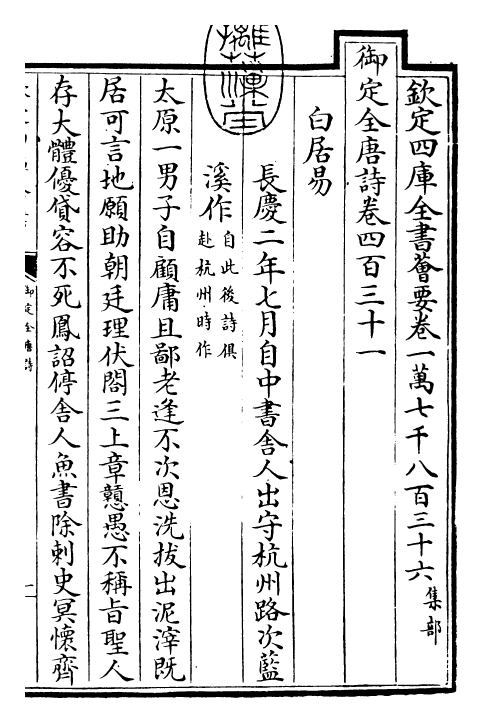 欽定四庫全書薈要卷一萬七千八百三十六集部
御定全唐詩卷四百三十一
白居易
長慶二年七月自中書舍人出守杭州路次藍
溪作自此後詩俱
赴杭州時作
太原一男子自顧庸且鄙老逢不次恩洗拔出泥滓既
居可言地願助朝廷理伏閤三上章戇愚不稱旨聖人
存大體優貸容不死鳳詔停舍人魚書除刺史冥懷齊
御定全唐詩
一